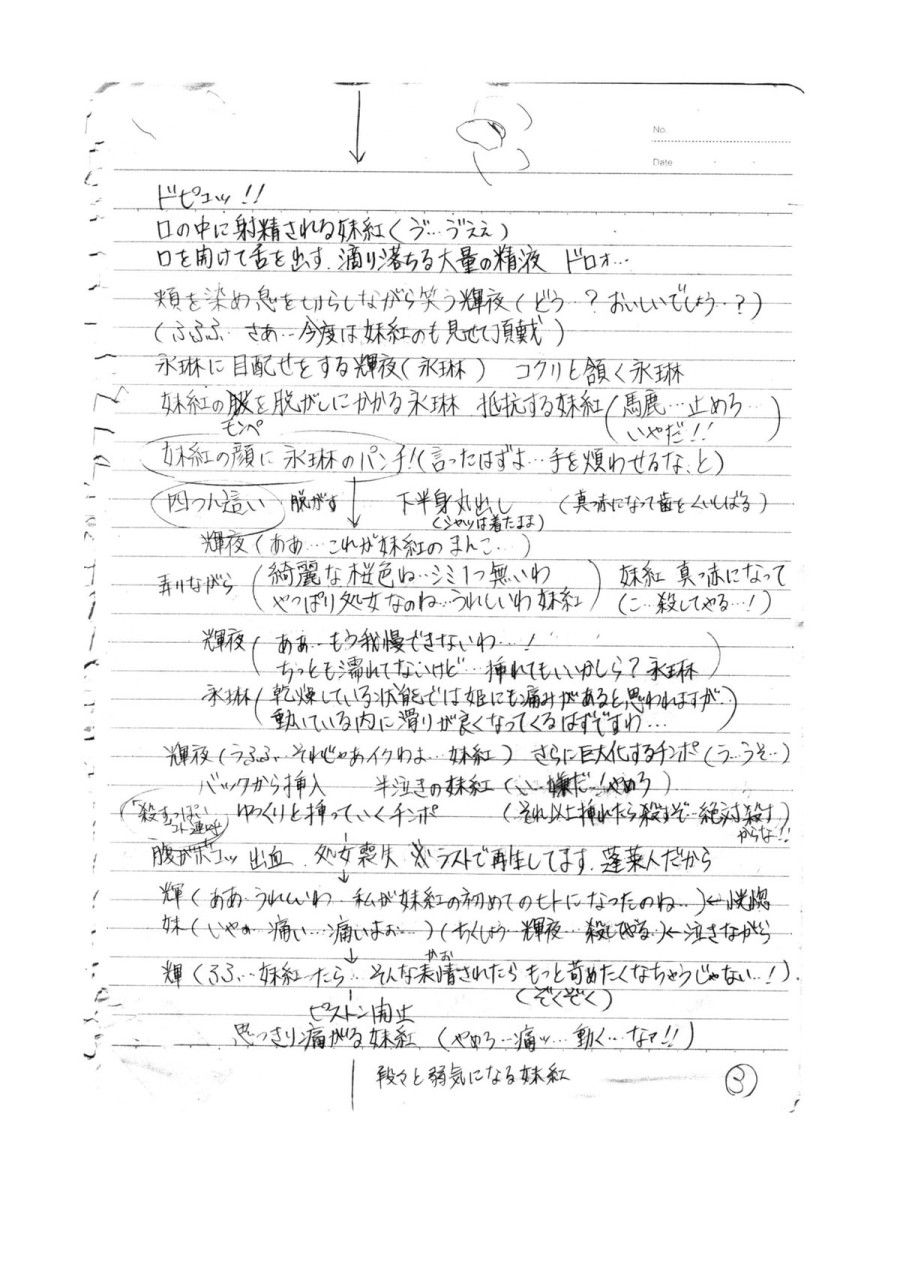 No.
Date
ドピュッ!!
口の中に射精される妹紅(ヴ…ヴええ)
口を開けて舌を出す、滴り落ちる大量の精液 ドロォ…
頬を染め息を切らしながら笑う輝夜(どう…?おいしいでしょう…?)
(ふふふ…さあ…今度は妹紅のも見せて頂戴)
永琳に目配せをする輝夜(永琳) コクリと頷く永琳
妹紅の服を脱がしにかかる永琳 抵抗する妹紅(馬鹿…止めろ…
モンペ いやだ!!)
妹紅の顔に永琳のパンチ!(言ったはずよ…手を煩わせるな、と)
四つん這い 脱がす 下半身丸出し (真っ赤になって歯をくいしばる)
(シャツは着たまま)
輝夜(ああ…これが妹紅のまんこ…)
弄りながら(綺麗な桜色ね…シミ1つ無いわ 妹紅 真っ赤になって
やっぱり処女なのね…うれしいわ妹紅) (こ…殺してやる…!)
輝夜(ああ…もう我慢できないわ…!
ちっとも濡れてないけど…挿れてもいいかしら?永琳)
永琳(乾燥している状態では姫にも痛みがあると思われますが…
動いている内に滑りが良くなってくるはずですわ…)
輝夜(うふふ…それじゃあイクわよ…妹紅) さらに巨大化するチンポ(う…うそ…)
バックから挿入 半泣きの妹紅(い…嫌だ…やめろ)
「殺すっぽいコト連呼 ゆっくりと挿っていくチンポ (それ以上挿れたら殺すぞ…絶対殺す
からな!!)
腹がボコッ 出血 処女喪失 ※ラストで再生してます。蓬莱人だから
輝(ああ…うれしいわ…私が妹紅の初めてのヒトになったのね…)←恍惚
妹(いやぁ…痛い…痛いよぉ…)(ちくしょう…輝夜…殺してやる…)←泣きながら
輝(ふふ…妹紅ったら…そんな表情されたらもっと苛めたくなちゃうじゃない…!)
かお
(ぞくぞく)
ピストン開始
思っきり痛がる妹紅 (やめろ…痛ッ…動く…なァ!!)
段々と弱気になる妹紅
③